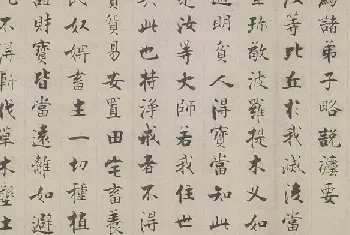 為諸弟子略說灋要
汝等比丘於我滅後當
重珍敬波羅提木叉如
遇明貧人得寶當知此
是汝等大師若我住世
異此也持淨戒者不得
賣貿易安置田宅畜養
民奴婢畜生一切種植
諸財寶皆當遠離如避
不得斬伐草木墾土